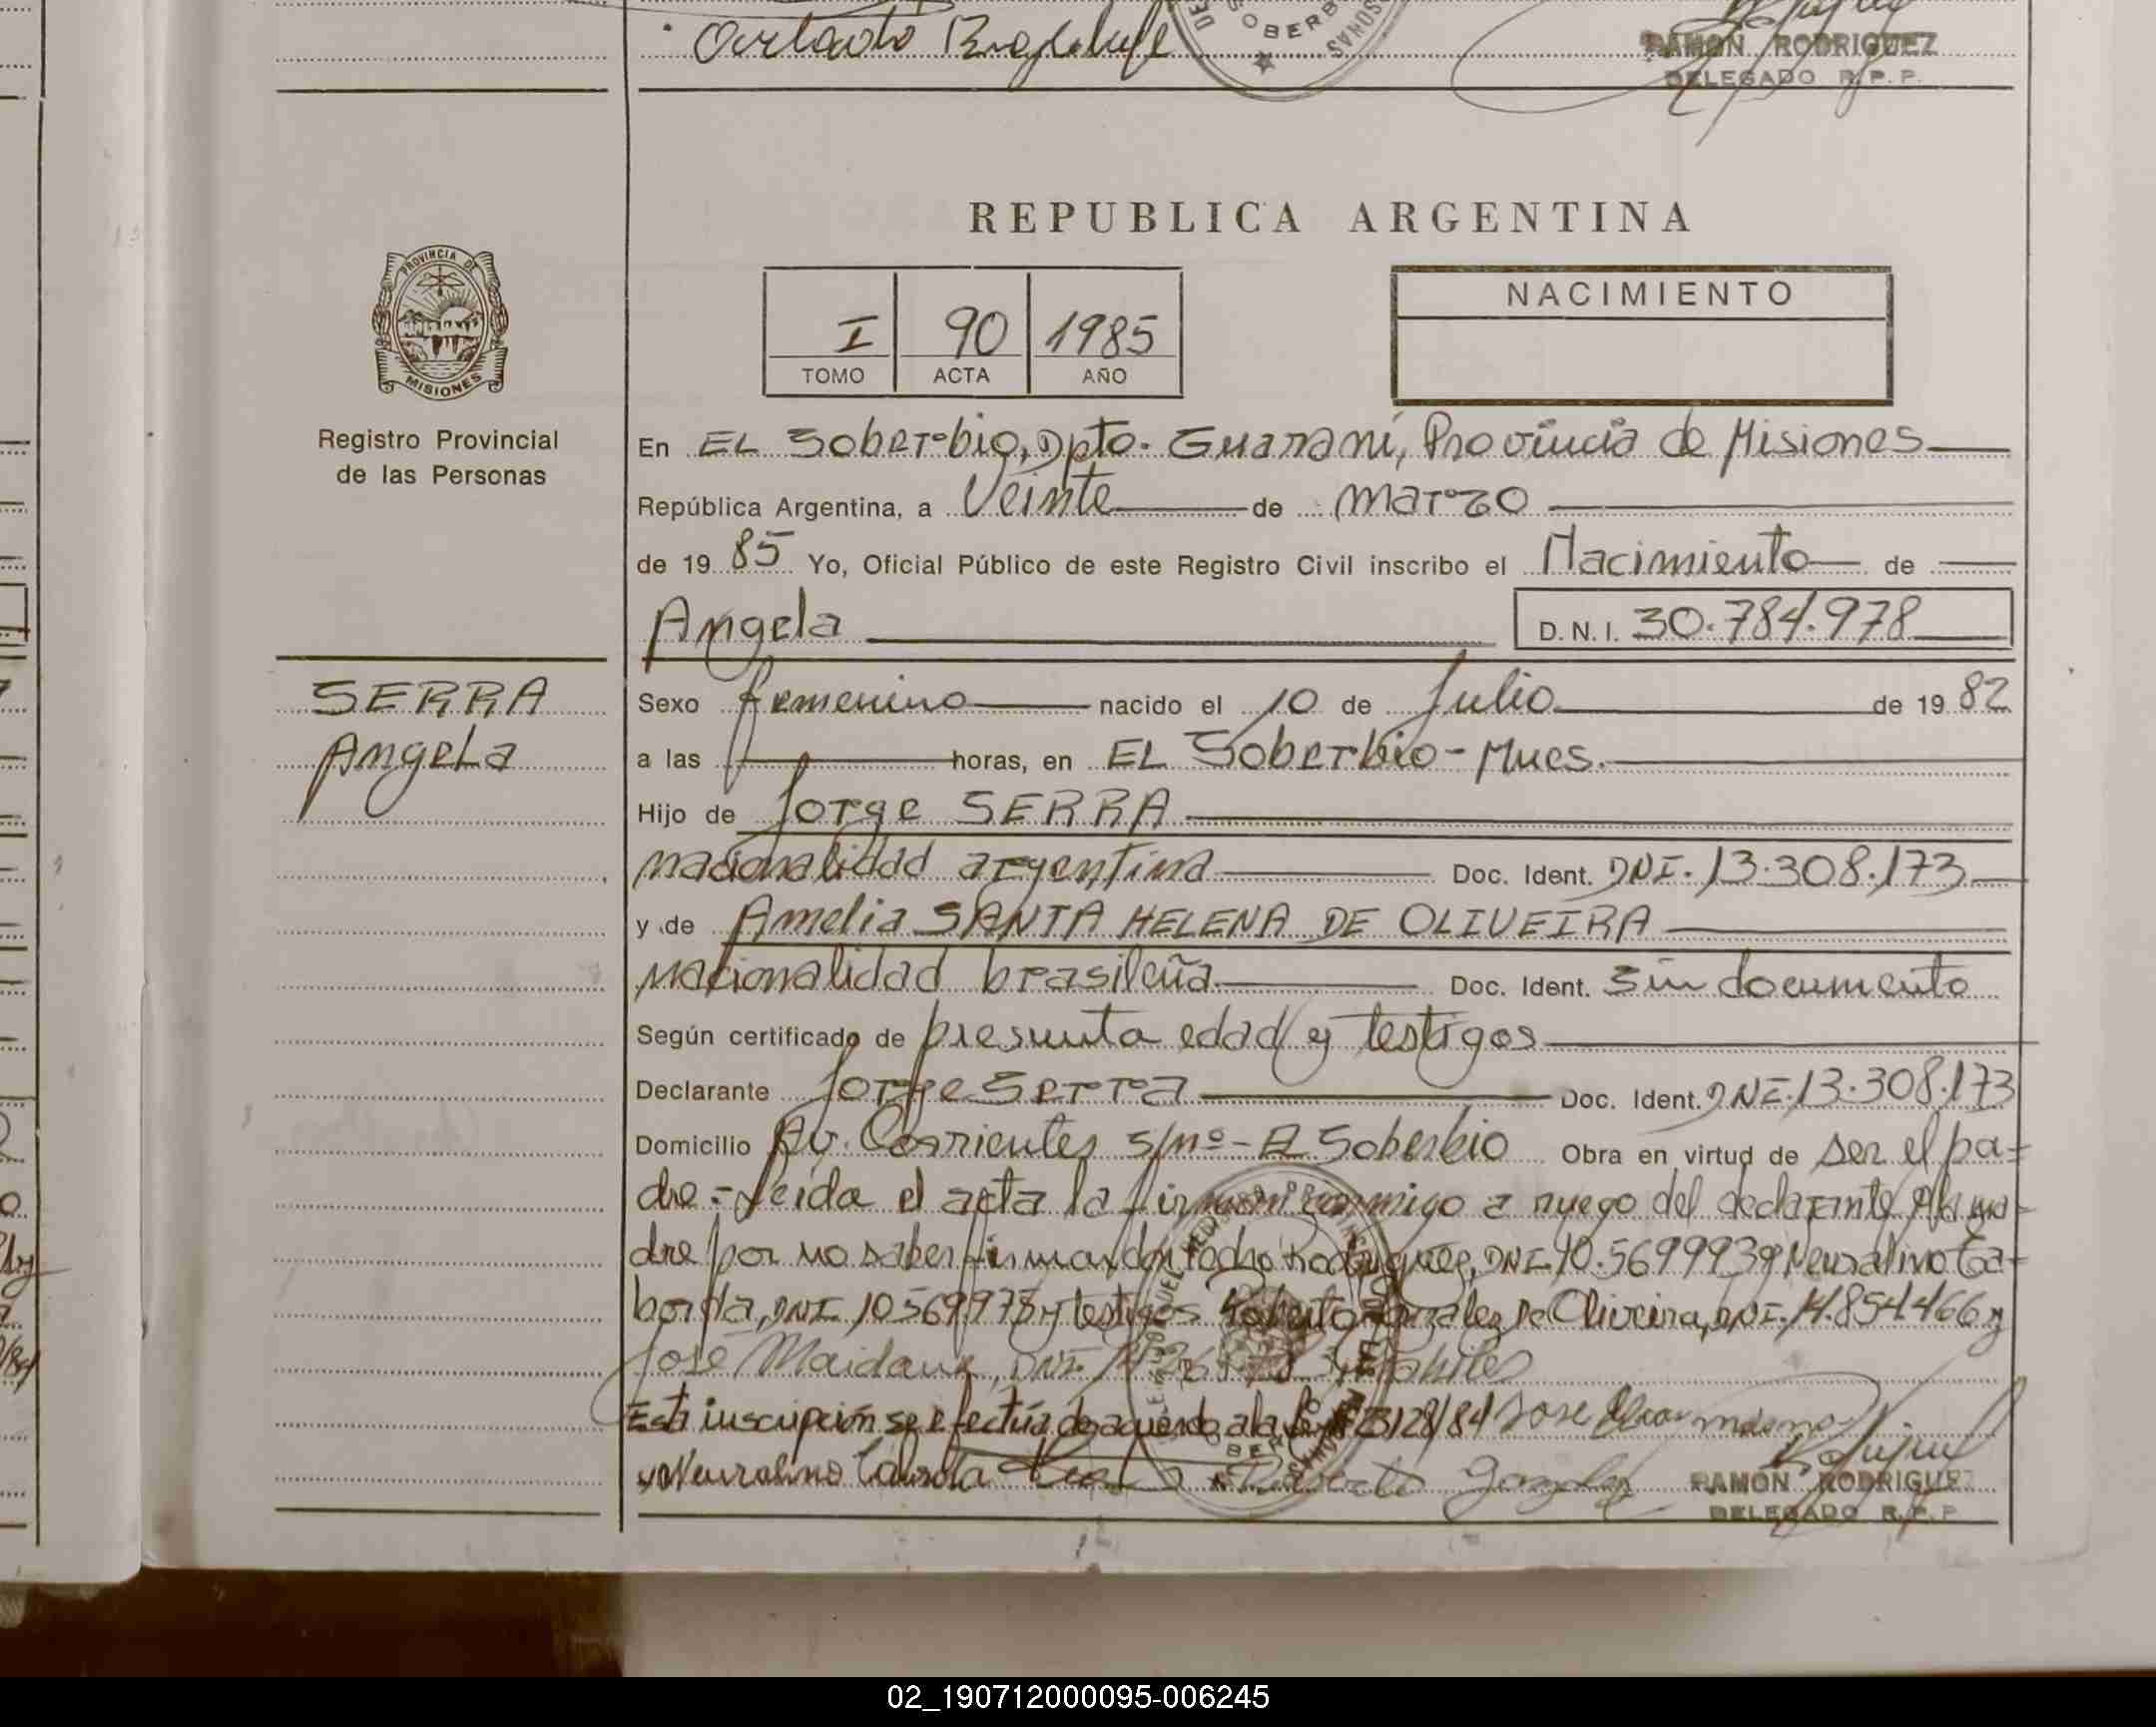 RAMON RODRIGUEZ
DELEGADO R.P.P.
REPUBLICA ARGENTINA
PROVINCIA DE
MISIONES
Registro Provincial
de las Personas
I 90 1985
TOMO ACTA AÑO
NACIMIENTO
En EL Soberbio, Dpto. Guaraní, Provincia de Misiones
República Argentina, a Veinte de marzo
de 19 85 Yo, Oficial Público de este Registro Civil inscribo el Nacimiento de
Angela D.N.I. 30.784.978
SERRA
Angela
Sexo femenino nacido el 10 de Julio de 19 82
a las horas, en EL Soberbio - Mnes.
Hijo de Jorge SERRA
nacionalidad argentina Doc. Ident. DNI. 13.308.173
y de Amelia SANTA HELENA DE OLIVEIRA
nacionalidad brasileña Doc. Ident. Sin documento
Según certificado de presunta edad y testigos
Declarante Jorge Serra Doc. Ident. DNI. 13.308.173
Domicilio Av. Corrientes s/nº - El Soberbio Obra en virtud de ser el pa=
dre = Leida el acta la firman conmigo a ruego del declarante
dre por no saber firmar don Pedro Rodriguez, DNI
DNI 10.569.978 y testigos Roberto Gonzalez De Oliveira, DNI. 14.854.466 y
José Maidana, DNI.
Esta inscripción se efectúa de acuerdo a la Ley 23128/84 Jose
Roberto Gonzalez
RAMON RODRIGUEZ
DELEGADO R.P.P.
02_190712000095-006245